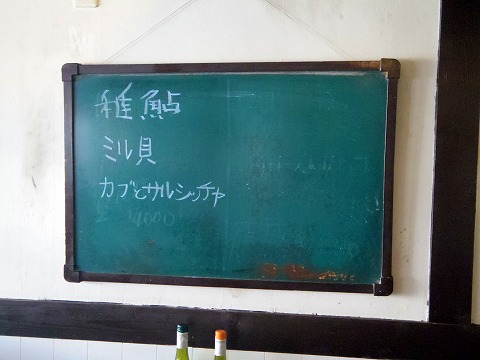 稚鮎
ミル貝
カブとサルシッチャ